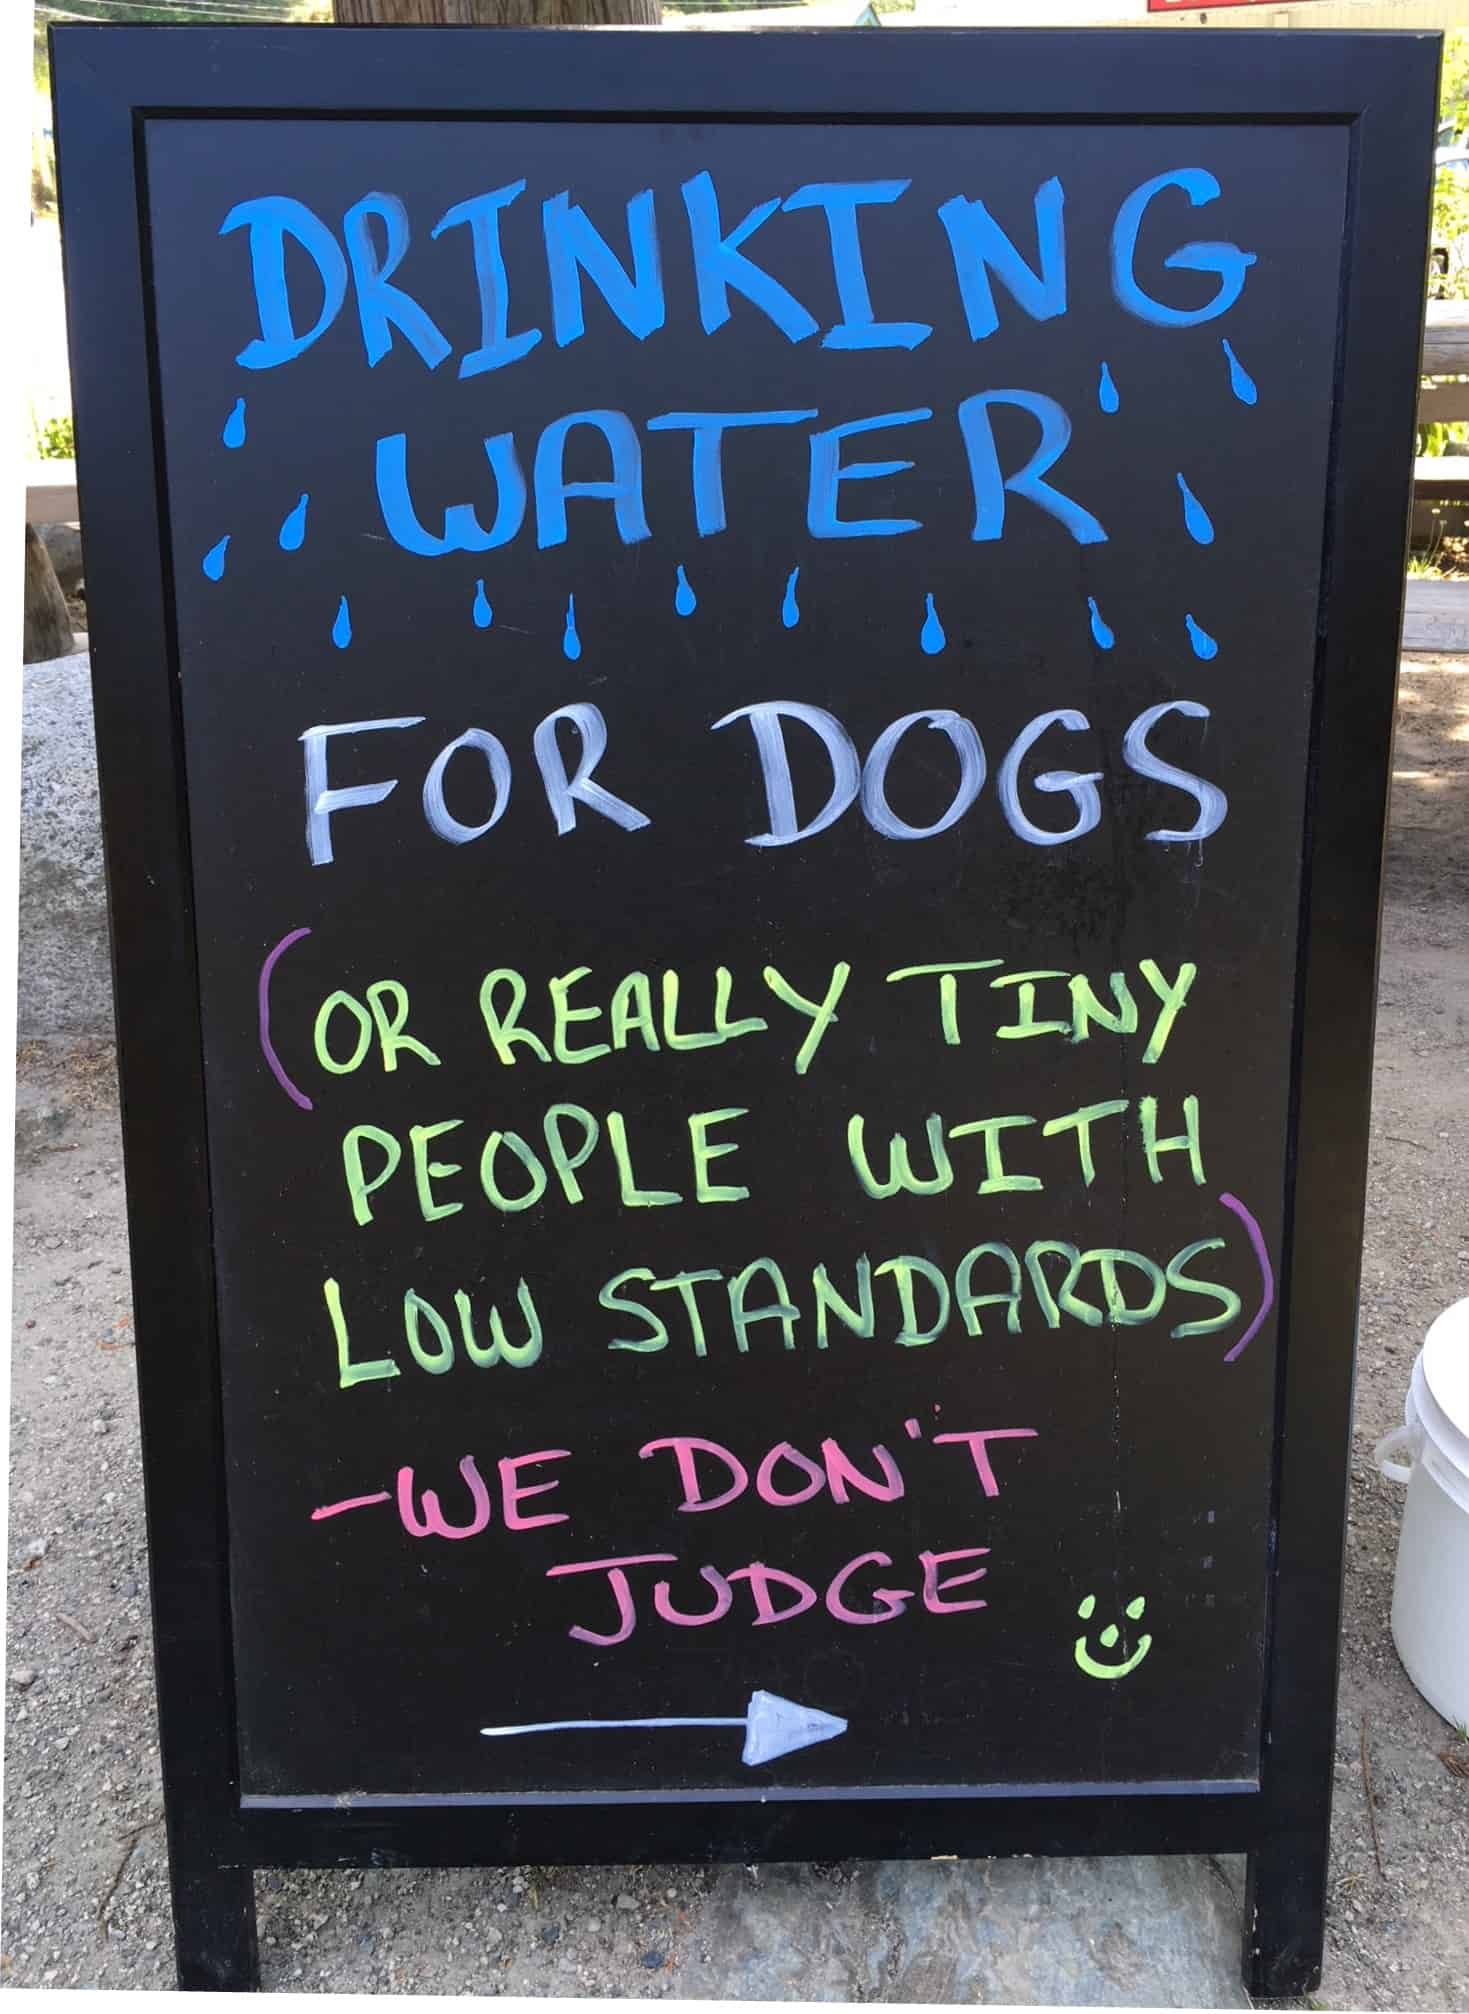 DRINKING
WATER
FOR DOGS
(OR REALLY TINY
PEOPLE WITH
LOW STANDARDS)
-WE DON'T
JUDGE